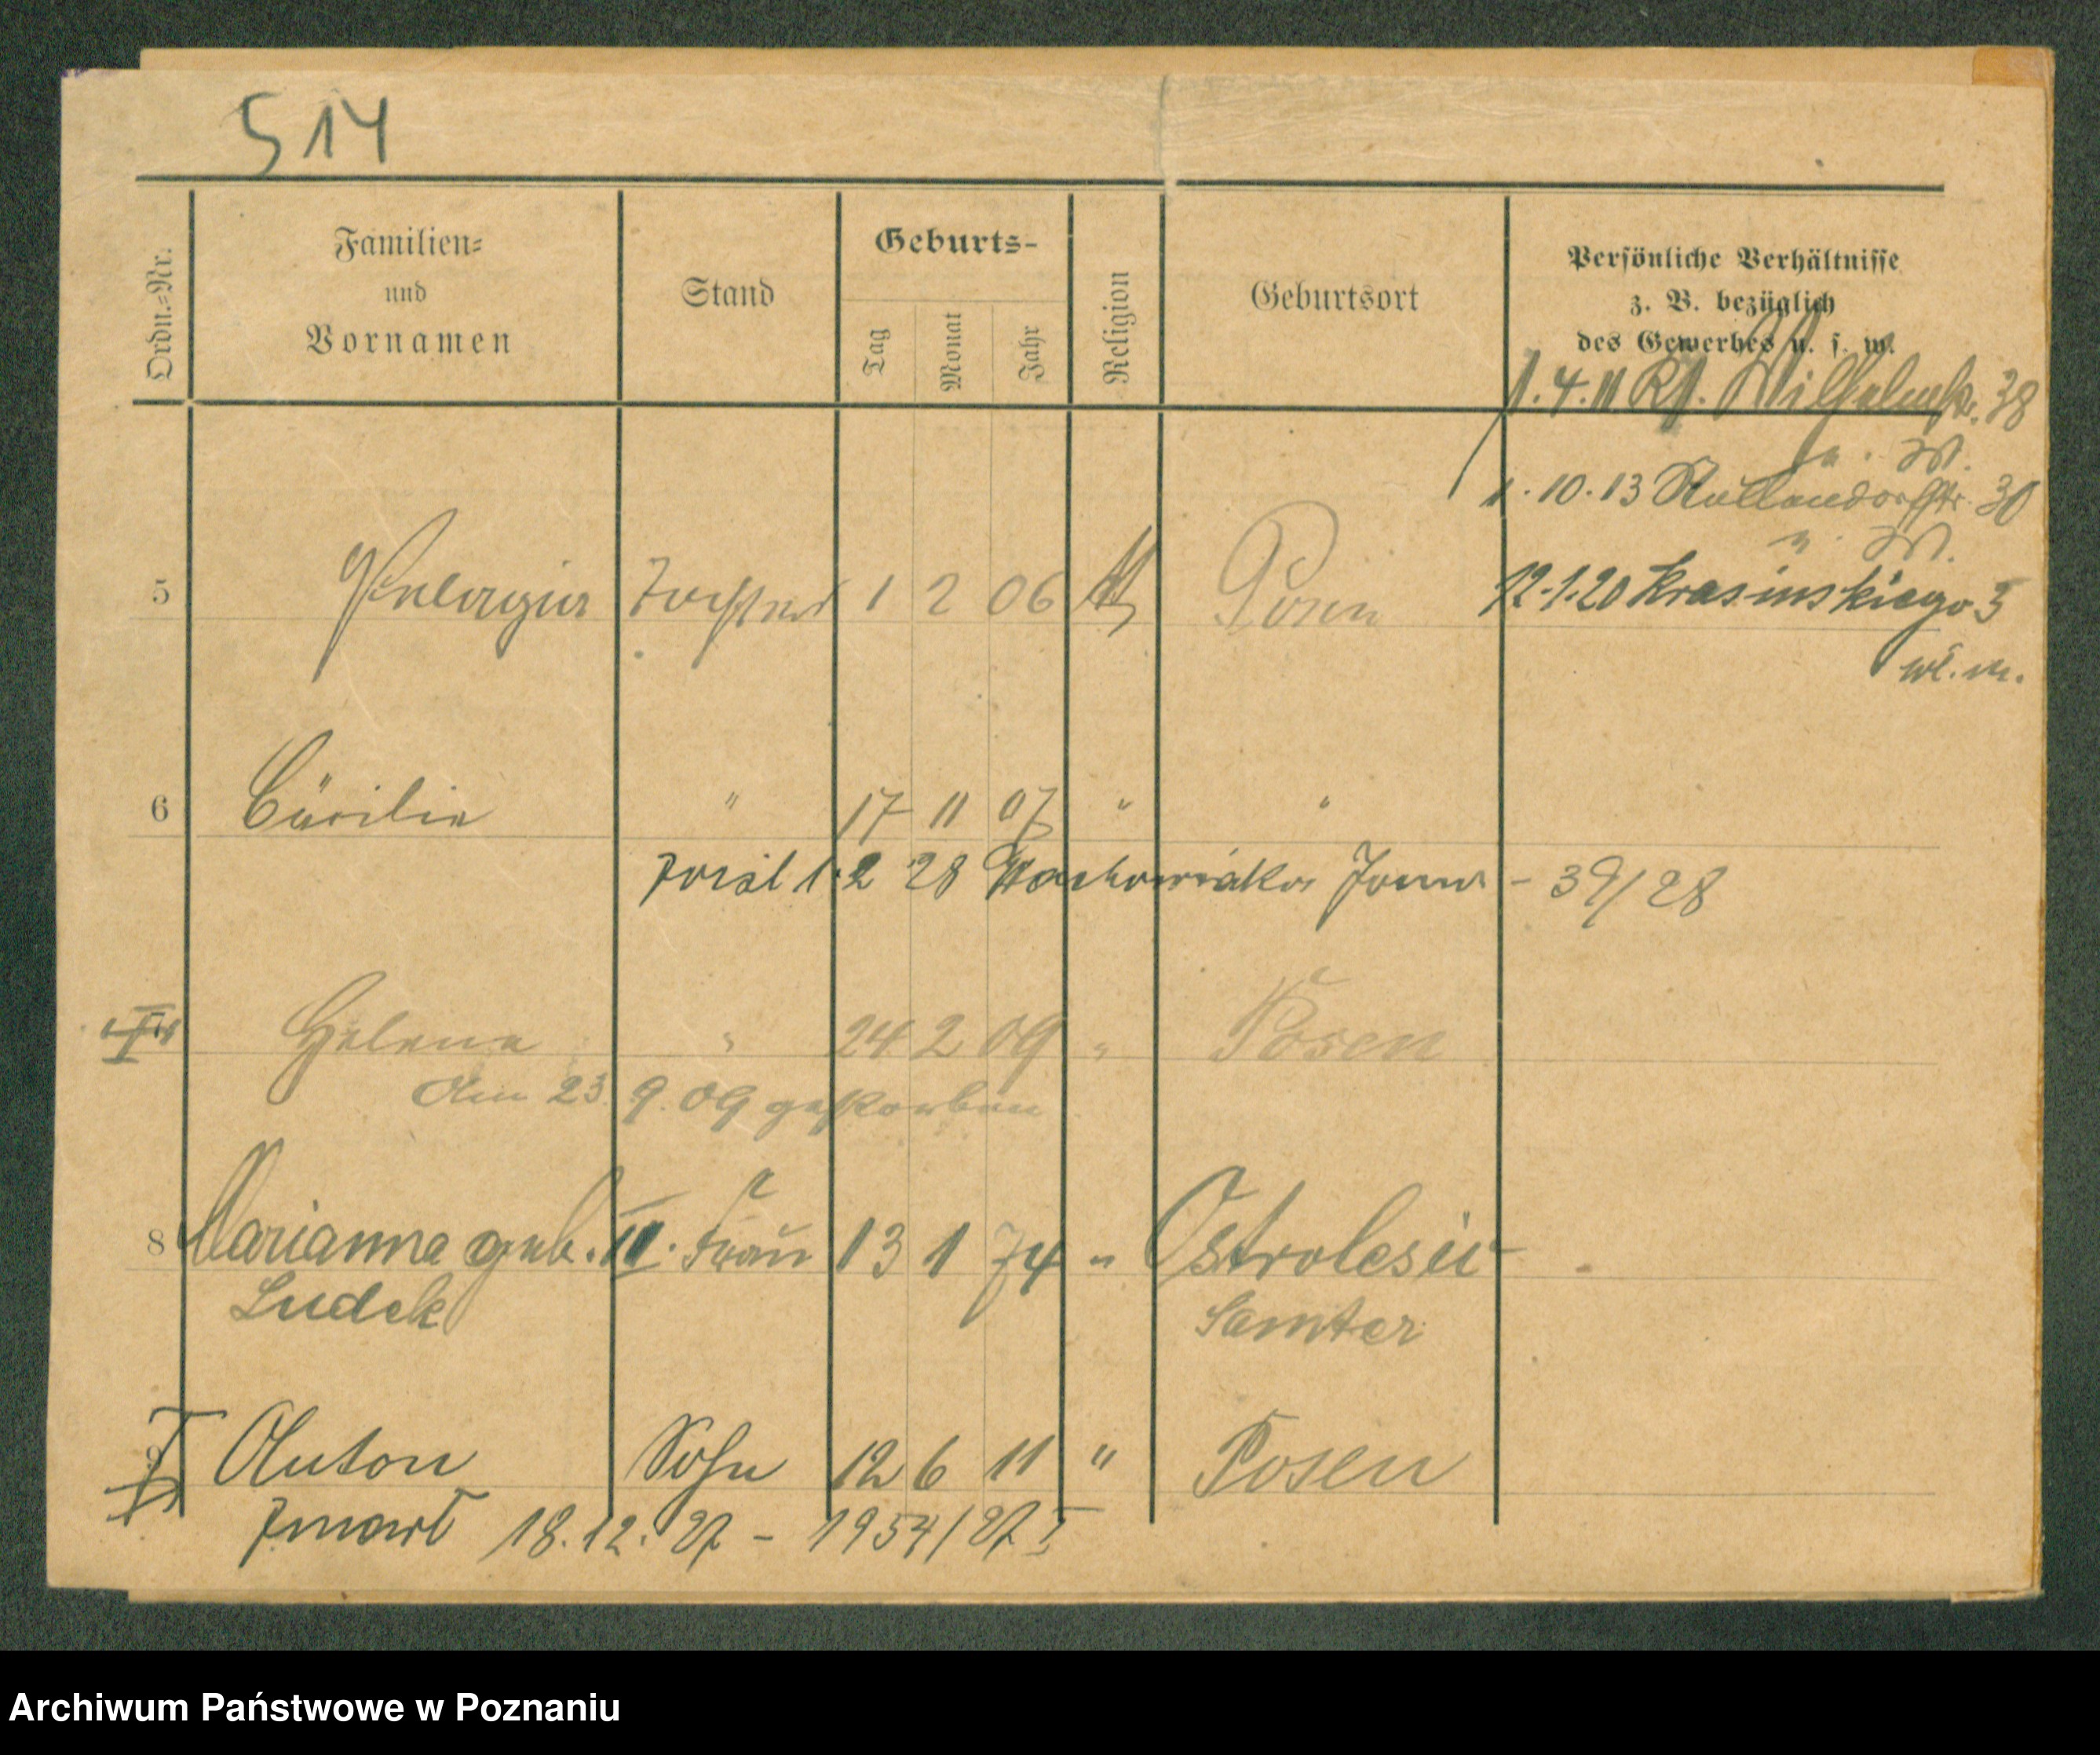 514
Ordn.-Nr.
Familien-
und
Vornamen
Stand
Geburts-
Tag
Monat
Jahr
Religion
Geburtsort
Persönliche Verhältnisse
z. B. bezüglich
des Gewerbes u. s. w.
1.4.11 Wilhelmstr. 38
1.10.13 Kollendorfstr. 30
5 Pelagia Tochter 1 2 06 Posen
12.1.20 Krasińskiego 3
wł. m.
6 Cäcilia " 17 11 07 " "
1.2 28 Wachowiaka - 39/28
Helena " 24 2 09 " Posen
Am 23. 9. 09 gestorben
8 Marianna geb. II. Frau 13 1 74 " Ostrolesie
Ludek
Samter
9 Anton Sohn 12 6 11 " Posen
Zmarł 18.12.27 - 1954/27 I
Archiwum Państwowe w Poznaniu